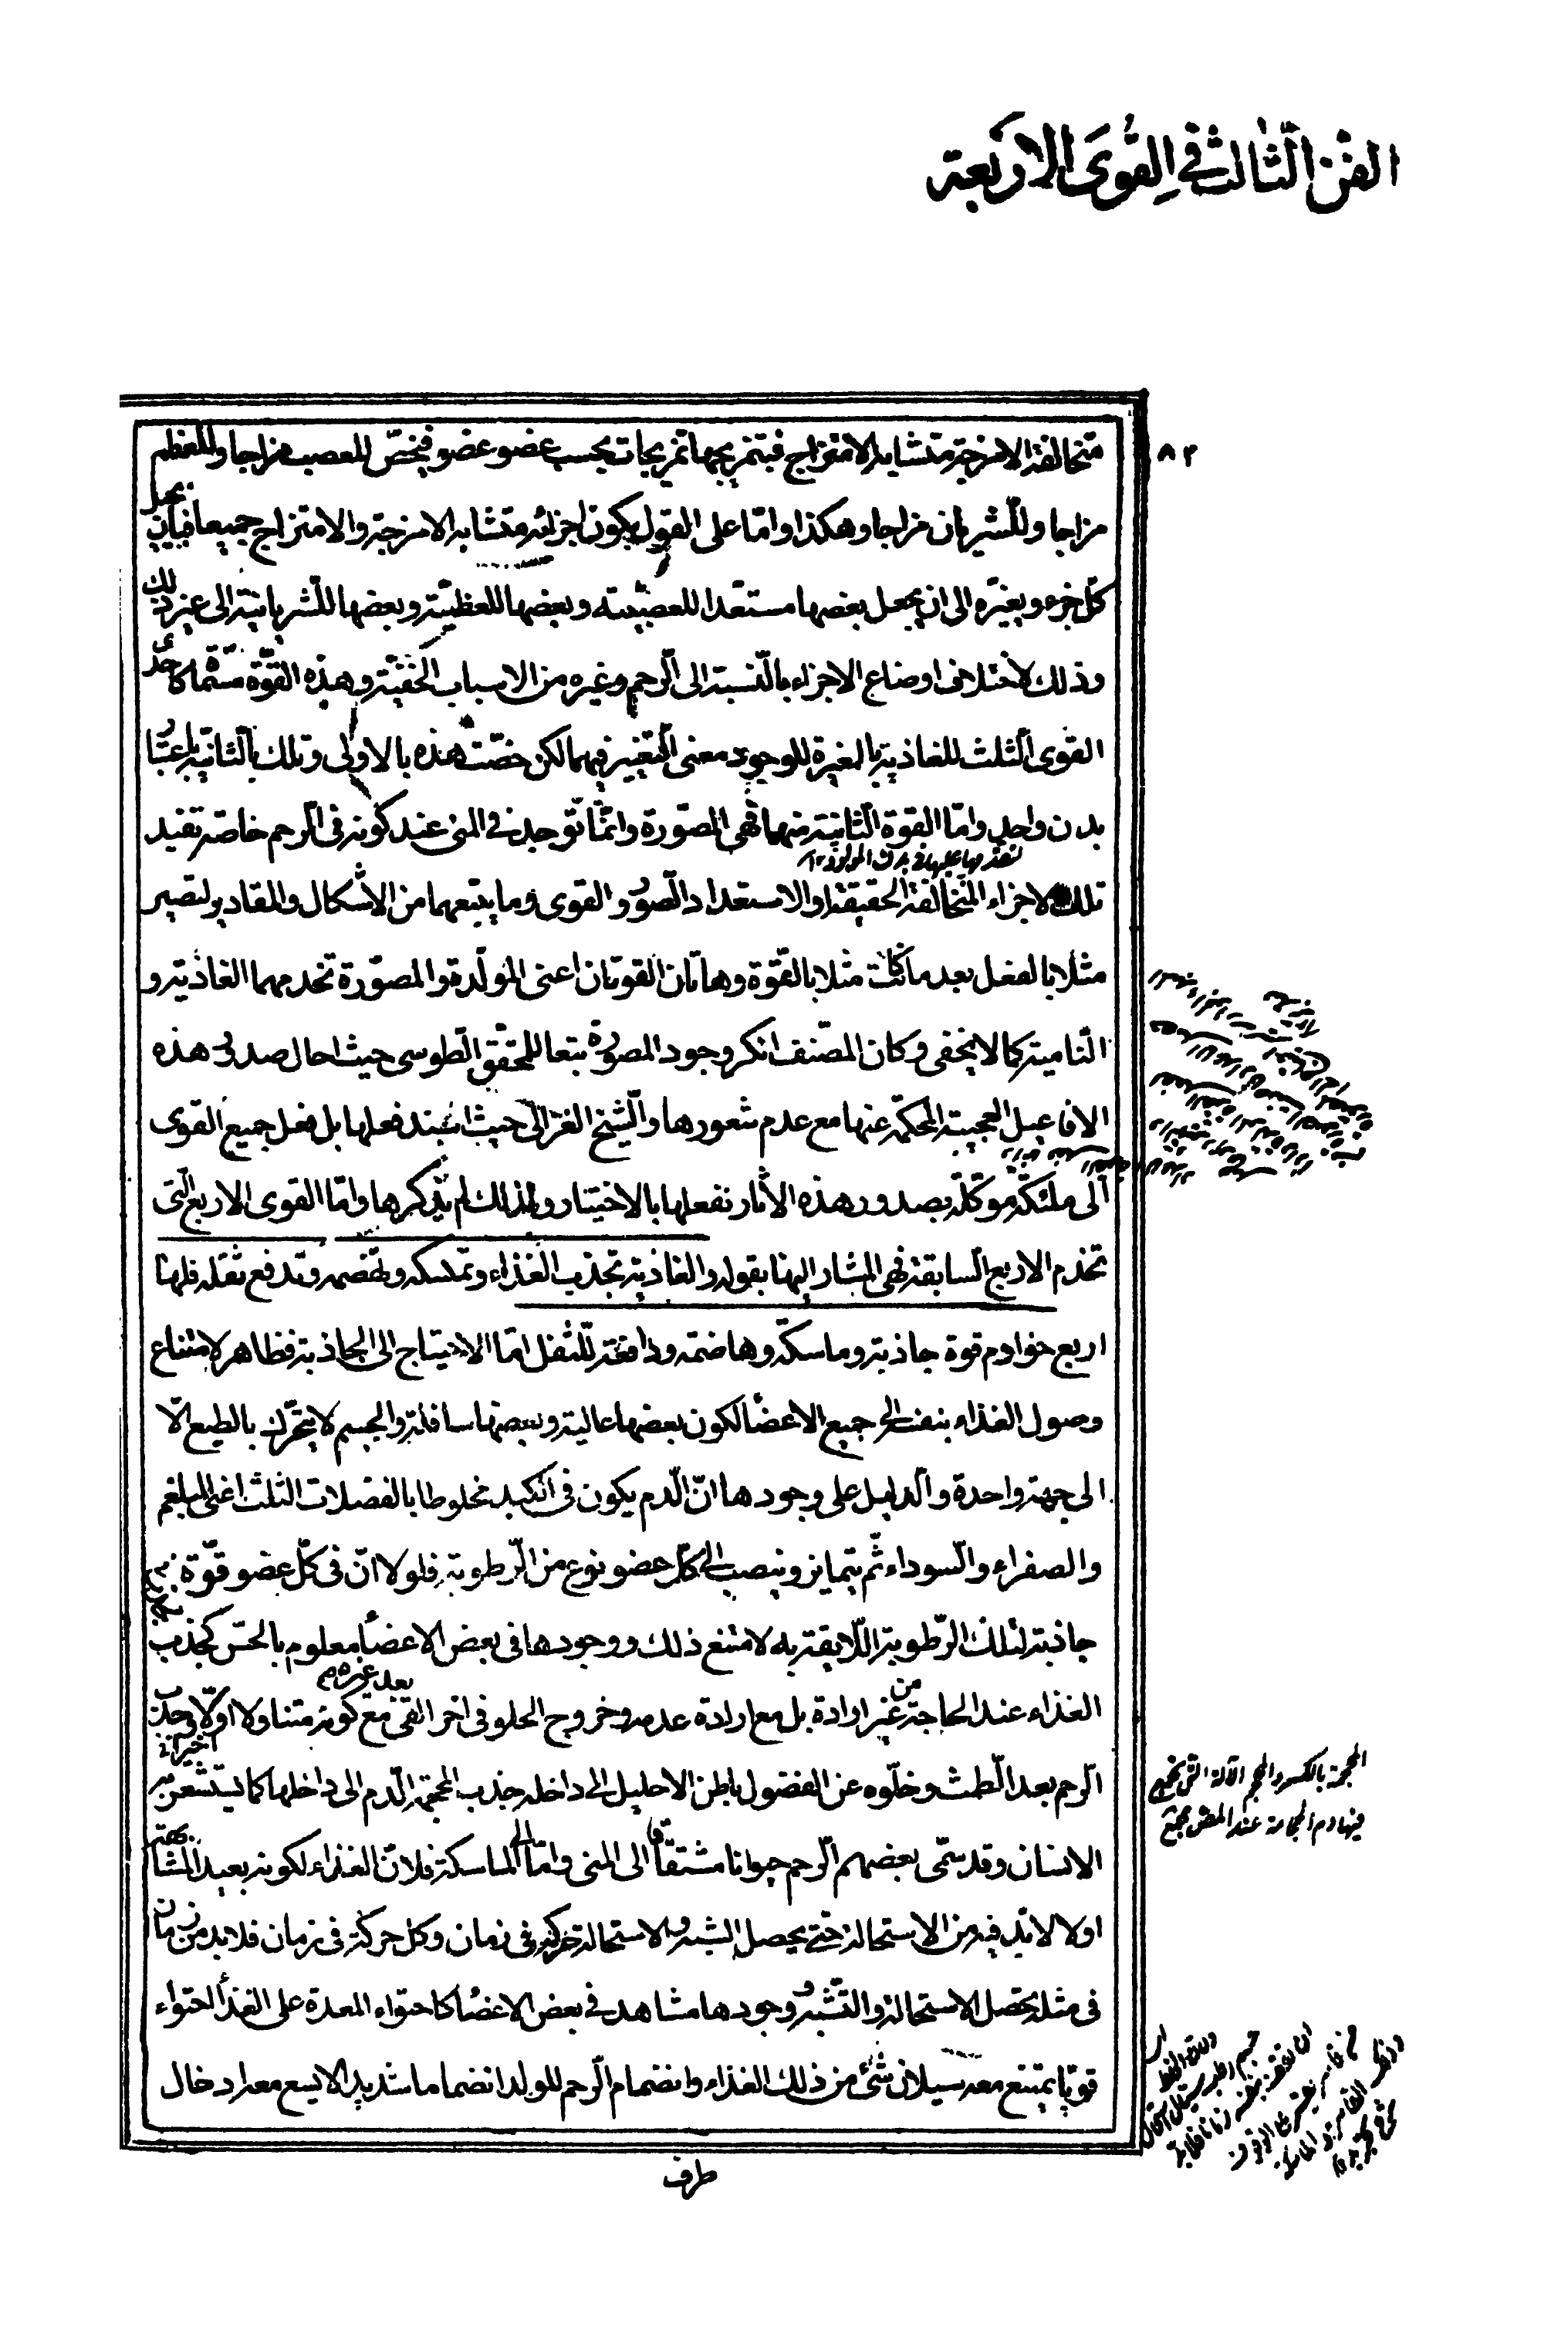 الفن الثالث في القوى الاربعة
٨٢
متخالفة الامزجة متشابه الامتزاج فيتمزجها تمزيجات بحسب عضو عضو فيخص للعصب مزاجا وللعظم
مزاجا وللشريان مزاجا وهكذا واما على القول بكون اجزائه متشابه الامزجة والامتزاج جميعا فبان يحيل
كل جزء ويغيره الى ان يجعل بعضها مستعدا للعصبية وبعضها للعظمية وبعضها للشريانية الى غير ذلك
وذلك لاختلاف اوضاع الاجزاء بالنسبة الى الرحم وغيره من الاسباب الخفية وهذه القوة مسماة كاحدى
القوى الثلث للغاذية بالمغيرة للوجود معنى التغيير فيهما لكن خصت هذه بالاولى وتلك بالثانية باعتبار
بدن واحد واما القوة الثانية منهما فهي المصورة وانما توجد في المنى عند كونه في الرحم خاصة تفيد
تلك الاجزاء المتخالفة الحقيقة او الاستعداد الصور والقوى وما يتبعهما من الاشكال والمقادير لتصير
مثلا بالفعل بعد ما كانت مثلا بالقوة وهاتان القوتان اعنى المولدة والمصورة تخدمهما الغاذية و
النامية كما لا يخفى وكان المصنف انكر وجود المصورة تبعا للمحقق الطوسى حيث احال صدور هذه
الافاعيل العجيبة المحكمة عنها مع عدم شعورها والشيخ الغزالى حيث اسند فعلها بل فعل جميع القوى
الى ملئكة موكلة بصدور هذه الاثار نفعلها بالاختيار ولذلك لم يذكرها واما القوى الاربع التى
تخدم الاربع السابقة فهى المشار اليها بقوله والغاذية تجذب الغذاء وتمسكه وتهضمه وتدفع ثفله فلها
اربع خوادم قوة جاذبة وماسكة وهاضمة ودافعة للثفل اما الاحتياج الى الجاذبة فظاهر لامتناع
وصول الغذاء بنفسه الى جميع الاعضا لكون بعضها عالية وبعضها سافلة والجسم لا يتحرك بالطبع الا
الى جهة واحدة والدليل على وجودها ان الدم يكون فى الكبد مخلوطا بالفضلات الثلث اعنى البلغم
والصفراء والسوداء ثم يتمايز وينصب الى كل عضو نوع من الرطوبة فلولا ان فى كل عضو قوة
جاذبة لتلك الرطوبة اللايقة به لامتنع ذلك ووجودها فى بعض الاعضا معلوم بالحس كجذب
الغذاء عند الحاجة من غير ارادة بل مع ارادة عدمه وخروج الحلو فى اخر القئ مع كونه متناولا اولا بعد غيره وجذب
الرحم بعد الطمث وخلوه عن الفضول باطن الاحليل الى داخله جذب المحجمة الدم الى داخلها كما يستشعر به
الانسان وقد سمى بعضهم الرحم حيوانا مشتاقا الى المنى واما الماسكة فلان الغذاء لكونه بعيد المشابهة
اولا لا بد فيه من الاستحالة حتى يحصل الشبه والاستحالة حركة فى زمان وكل حركة فى زمان فلا بد من زمان
فى مثله يحصل الاستحالة والتشبه ووجودها مشاهد فى بعض الاعضا كاحتواء المعدة على الغذا احتواء
قويا يمتنع معه سيلان شئ من ذلك الغذاء وانضمام الرحم للولد انضماما شديدا لا يسع معه ادخال
المحجمة بالكسر والمحجم الآلة التى يجمع
فيها دم الحجامة عند المص مجمع
طرف